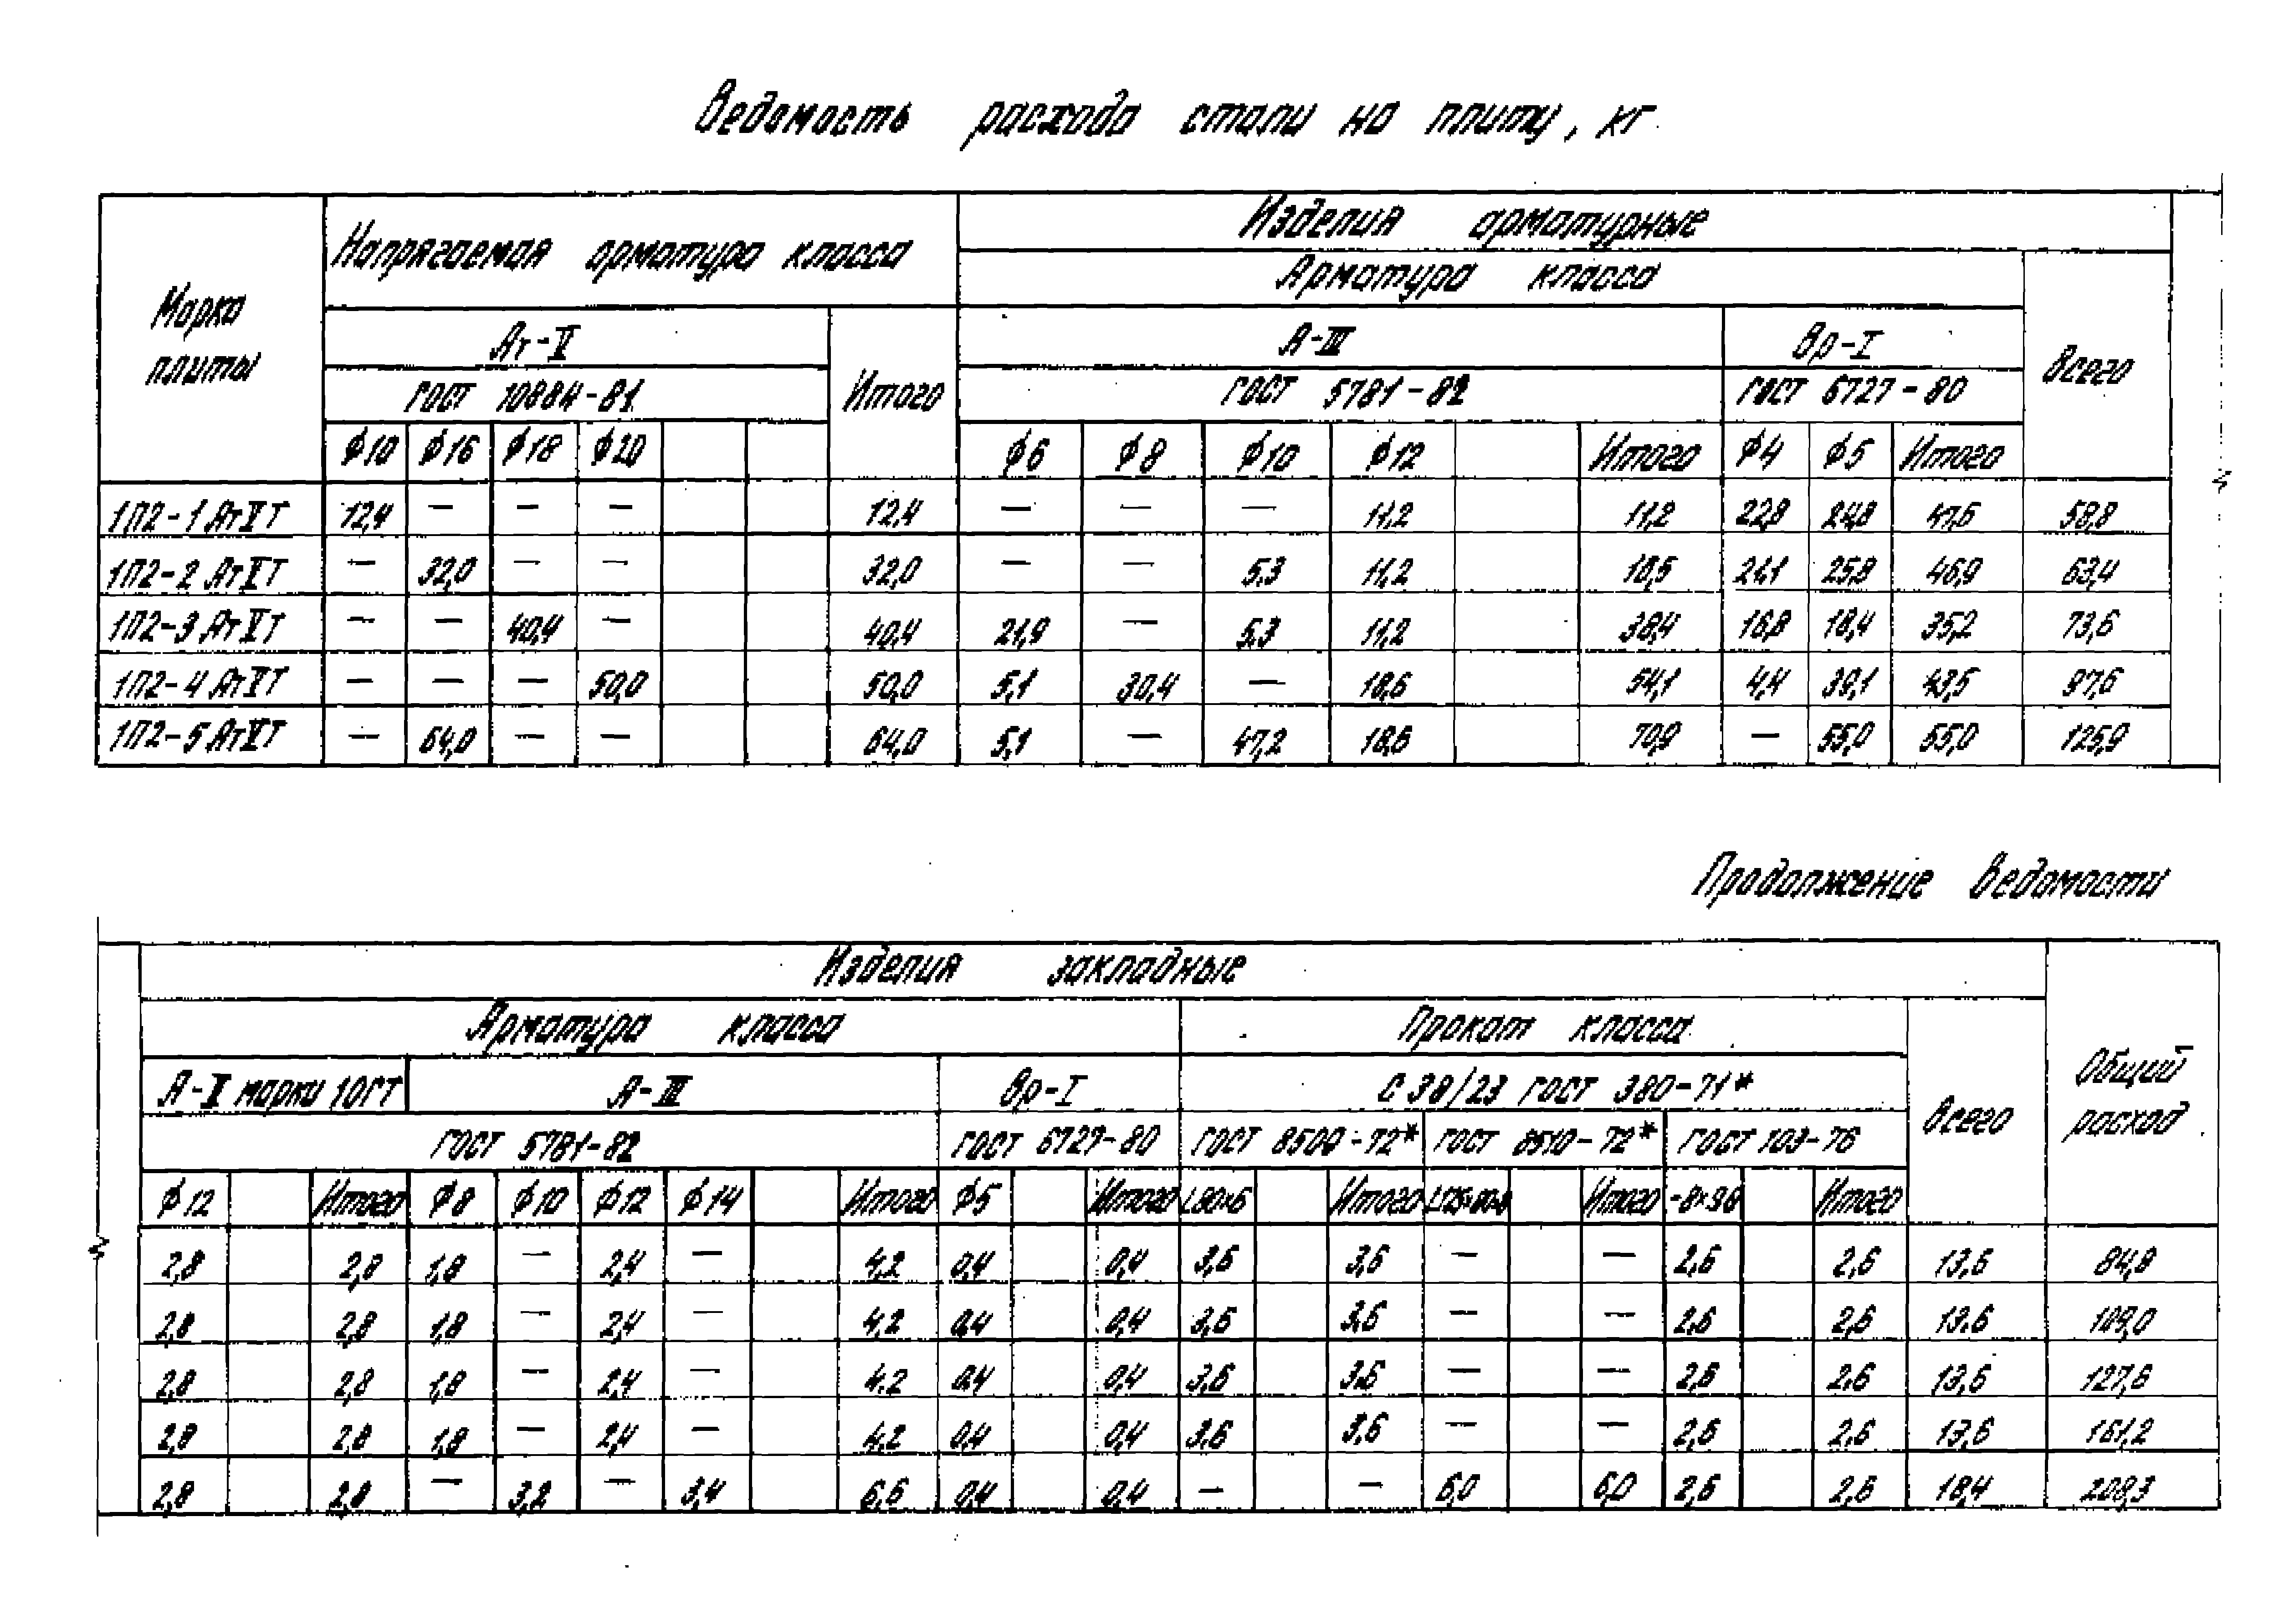 Ведомость расхода стали на плиту, кг
Марка плиты
Напрягаемая арматура класса
Изделия арматурные
Арматура класса
Ат-V
Итого
А-III
Вр-I
Всего
ГОСТ 10884-81
ГОСТ 5781-82
ГОСТ 6727-80
ϕ10 ϕ16 ϕ18 ϕ20 ϕ6 ϕ8 ϕ10 ϕ12 Итого ϕ4 ϕ5 Итого
1П2-1 АтVТ 12,4 — — — 12,4 — — — 11,2 11,2 22,8 24,8 47,6 58,8
1П2-2 АтVТ — 32,0 — — 32,0 — — 5,3 11,2 16,5 21,1 25,8 46,9 63,4
1П2-3 АтVТ — — 40,4 — 40,4 21,9 — 5,3 11,2 38,4 16,8 18,4 35,2 73,6
1П2-4 АтVТ — — — 50,0 50,0 5,1 30,4 — 18,6 54,1 4,4 39,1 43,5 97,6
1П2-5 АтVТ — 64,0 — — 64,0 5,1 — 47,2 18,6 70,9 — 55,0 55,0 125,9
Продолжение ведомости
Изделия закладные
Общий расход
Арматура класса
Прокат класса
Всего
А-II марки 10ГТ
А-III
Вр-I
С38/23 ГОСТ 380-71*
ГОСТ 5781-82
ГОСТ 6727-80
ГОСТ 8509-72*
ГОСТ 8510-72*
ГОСТ 103-76
ϕ12 Итого ϕ8 ϕ10 ϕ12 ϕ14 Итого ϕ5 Итого Итого Итого Итого
2,8 2,8 1,8 — 2,4 — 4,2 0,4 0,4 3,6 3,6 — — 2,6 2,6 13,6 84,8
2,8 2,8 1,8 — 2,4 — 4,2 0,4 0,4 3,6 3,6 — — 2,6 2,6 13,6 109,0
2,8 2,8 1,8 — 2,4 — 4,2 0,4 0,4 3,6 3,6 — — 2,6 2,6 13,6 127,6
2,8 2,8 1,8 — 2,4 — 4,2 0,4 0,4 3,6 3,6 — — 2,6 2,6 13,6 161,2
2,8 2,8 — 3,2 — 3,4 6,6 0,4 0,4 — — 6,0 6,0 2,6 2,6 18,4 208,3